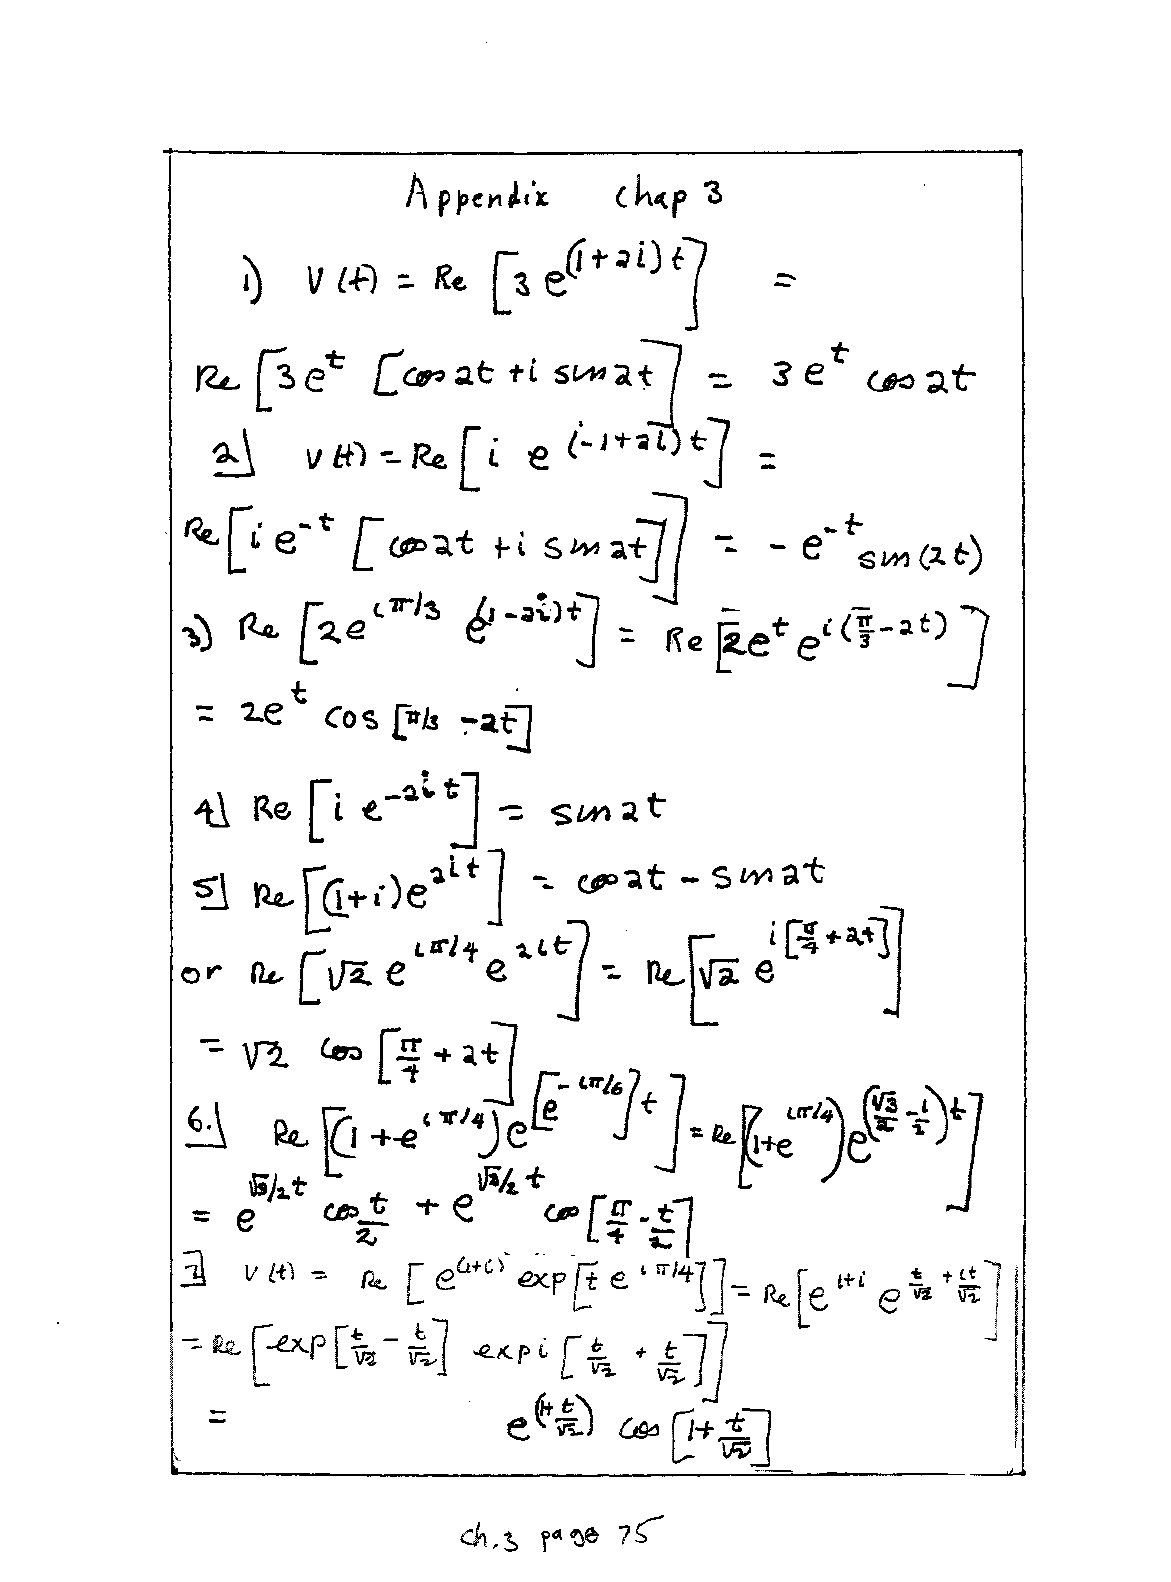 Appendix chap 3
1) V(t) = Re [3 e^{(1+2i)t}] =
Re [3e^t [cos 2t + i sin 2t] = 3 e^t cos 2t
2] v(t) = Re [i e^{(-1+2i)t}] =
Re [i e^{-t} [cos 2t + i sin 2t]] = - e^{-t} sin(2t)
3) Re [2e^{iπ/3} e^{(1-2i)t}] = Re [2e^t e^{i(π/3 - 2t)}]
= 2e^t cos [π/3 - 2t]
4] Re [i e^{-2it}] = sin 2t
5] Re [(1+i)e^{2it}] = cos 2t - sin 2t
or Re [√2 e^{iπ/4} e^{2it}] = Re [√2 e^{i[π/4 + 2t]}]
= √2 cos [π/4 + 2t]
6.] Re [(1 + e^{iπ/4}) e^{[e^{-iπ/6}]t}] = Re [(1+e^{iπ/4}) e^{(√3/2 - i/2)t}]
= e^{√3/2 t} cos t/2 + e^{√3/2 t} cos [π/4 - t/2]
7] V(t) = Re [e^{(1+i)} exp[t e^{iπ/4}]] = Re [e^{1+i} e^{t/√2 + it/√2}]
= Re [exp [t/√2 - t/√2] exp i [t/√2 + t/√2]]
= e^{(1+ t/√2)} cos [1 + t/√2]
ch.3 page 75